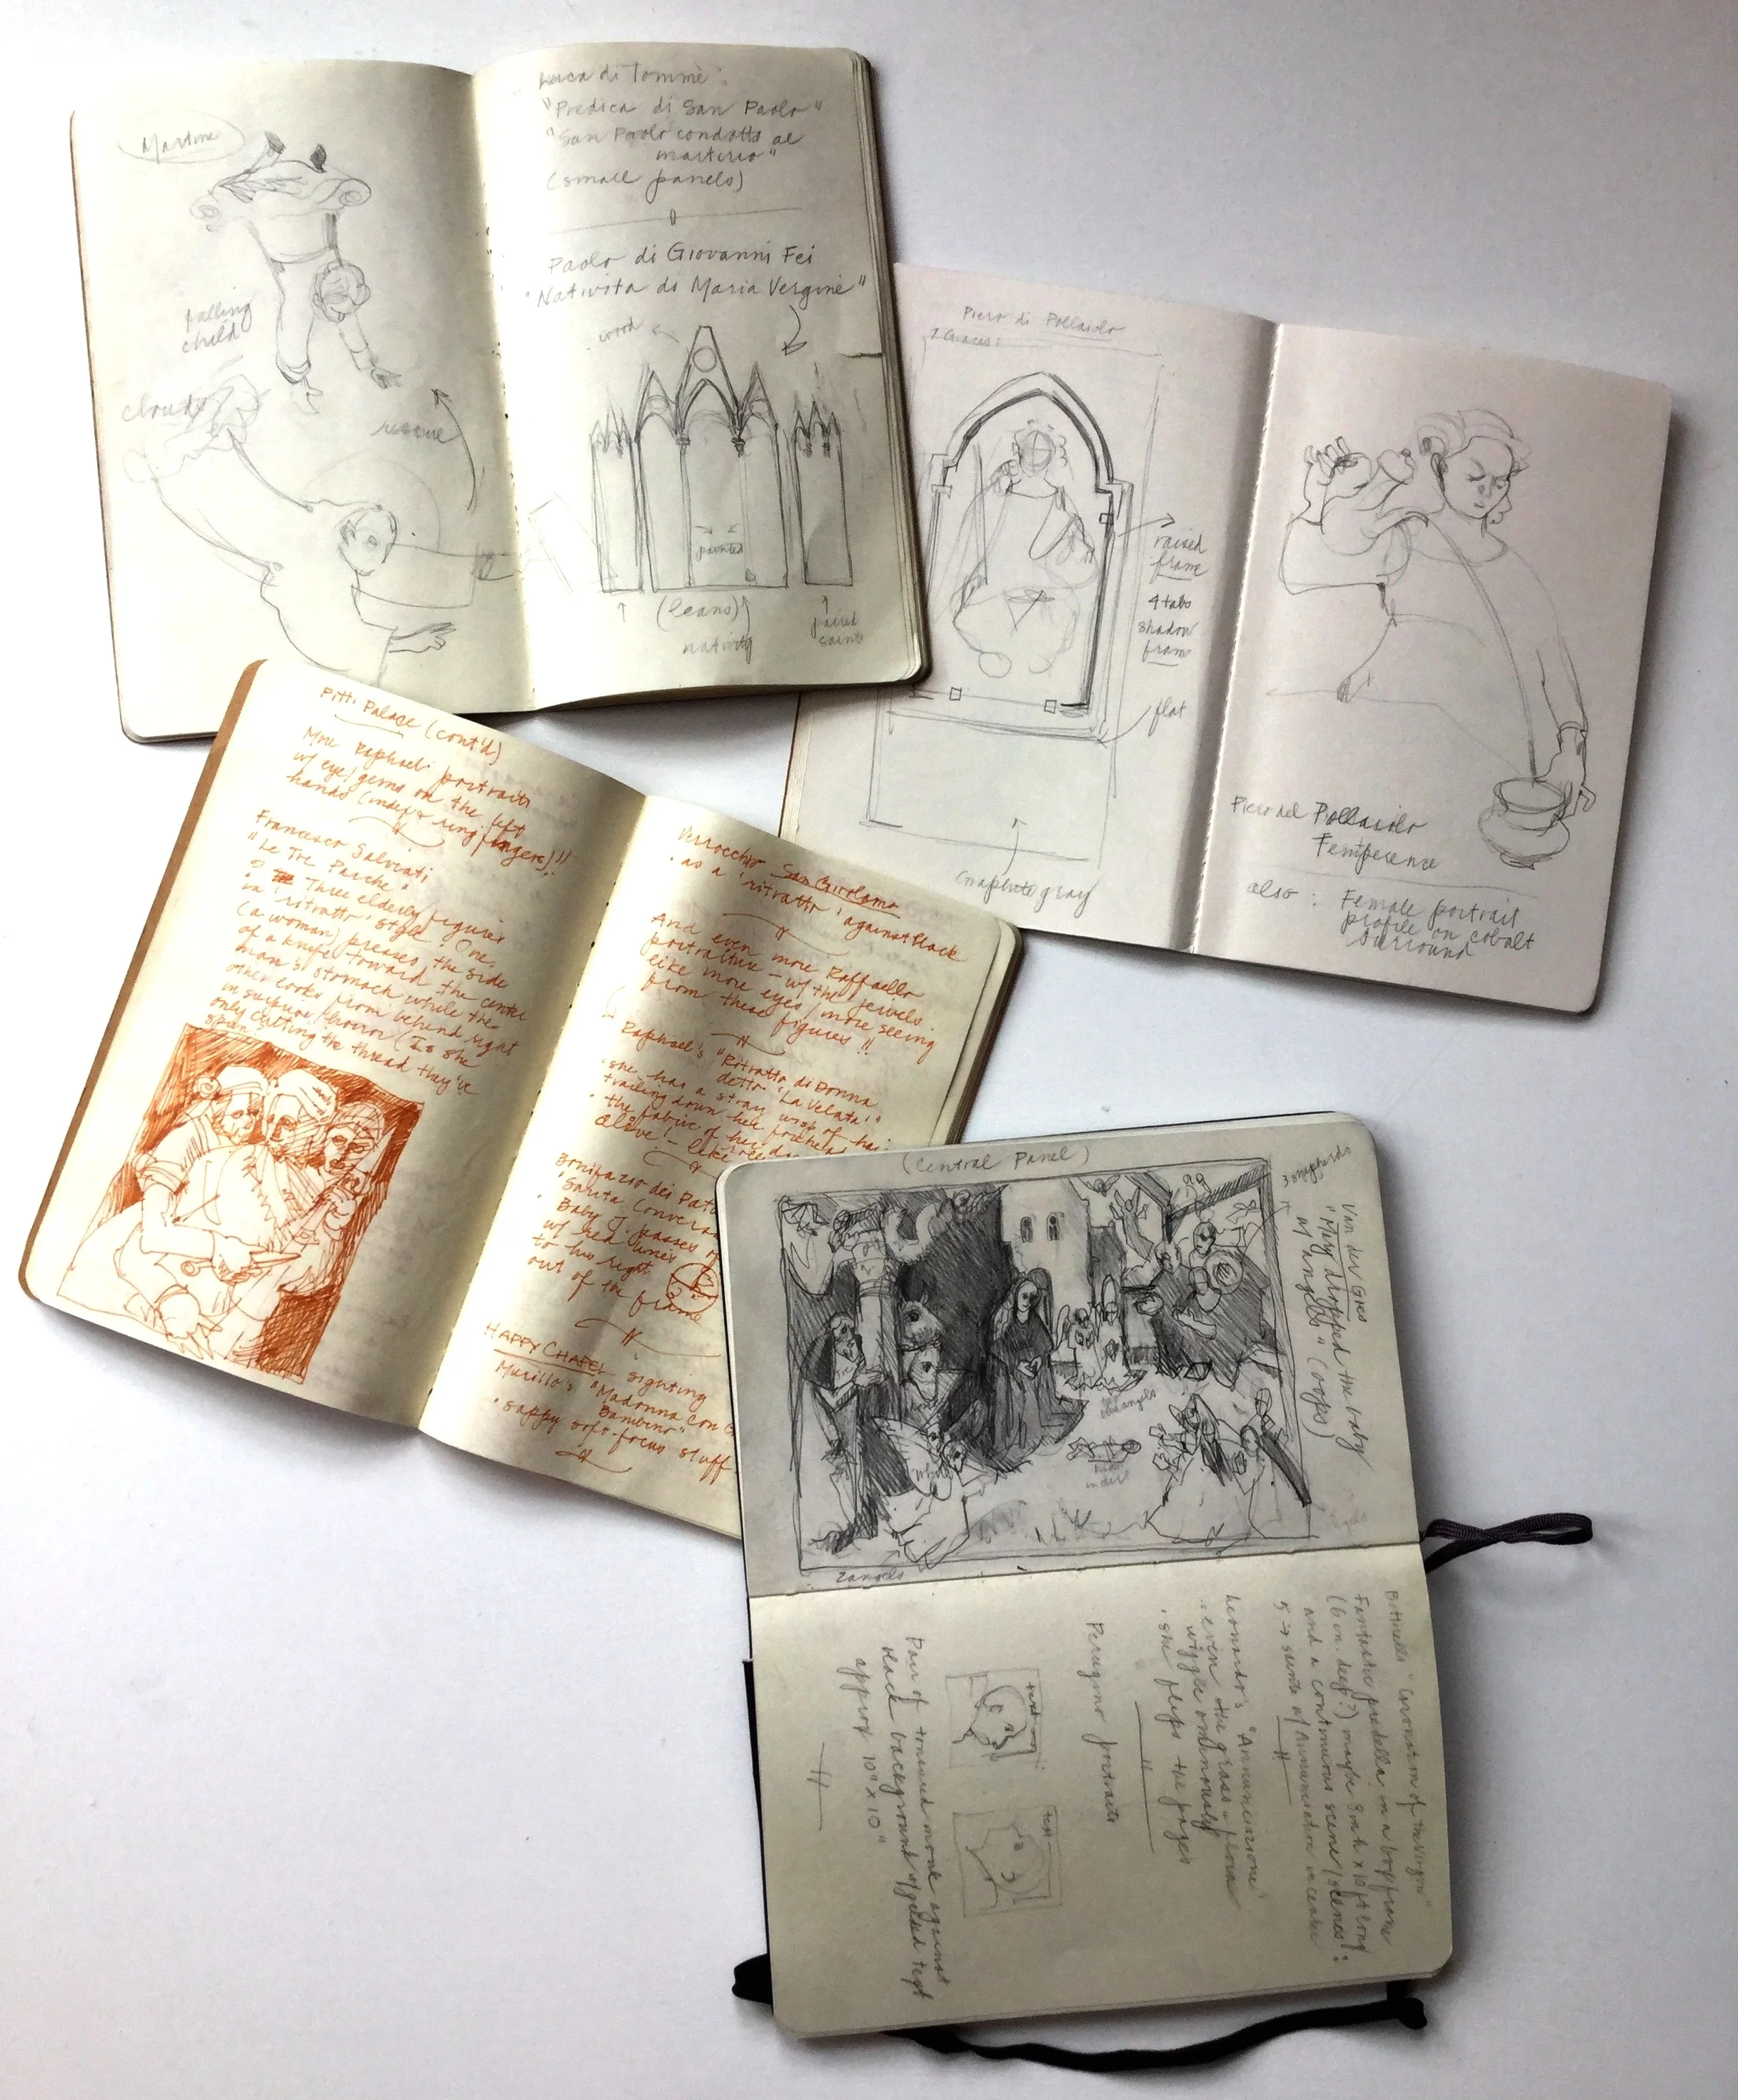 Martini
falling
child
clouds
rescue
Luca di Tommè:
"Predica di San Paolo"
"San Paolo condotto al
martirio"
(small panels)
Paolo di Giovanni Fei
"Nativita di Maria Vergine"
wood
painted
(leans)
nativity
paired
saints
Piero di Pollaiolo
7 Graces:
raised
frame
4 tabs
shadow
frame
flat
Graphite gray
Piero del Pollaiolo
Temperence
also: Female portrait
profile on cobalt
surround
Pitti Palace (cont'd)
More Raphael portraits
w/ eye/gems on the left
hands (index & ring fingers)!!
Francesco Salviati
"Le Tre Parche"
Three elderly figures
in 'ritratto' style. One
(a woman) presses the side
of a knife toward the center
man's stomach while the
other looks from behind right
in surprise/horror (Is she
only cutting the thread they've
spun?)
Verrocchio San Girolamo
· as a 'ritratto' against black
And even more Raffaello
portraiture – w/ the jewels
like more eyes/more seeing
from these figures!!
Raphael's "Ritratto di Donna
detto 'La Velata'"
· she has a stray wisp of hair
trailing down her forehead
· the fabric of her
alive – like
Bonifazio dei
Santa Conversa
· Baby J. passes
w/ red lines
to his right
out of the frame
HAPPY CHAPEL sighting
Murillo's "Madonna con
Bambino"
· sappy soft-focus stuff
(Central Panel)
3 shepherds
Van der Goes
"Mary dropped the baby
w/ angels" (oops)
blue angels
white
2 angels
Botticelli "Coronation of the Virgin"
Fantastic predella in a box frame
(6 in. deep?) maybe 8 in h x 10 ft long
and a continuous scene/scenes:
5 → saints w/ Annunciation in center
Leonardo's "Annunciazione"
· even the grass + flora
wiggle ominously
· she flips the pages
Perugino portraits
text
text
Pair of tonsured monks against
black background w/ gilded text
approx 10" x 10"